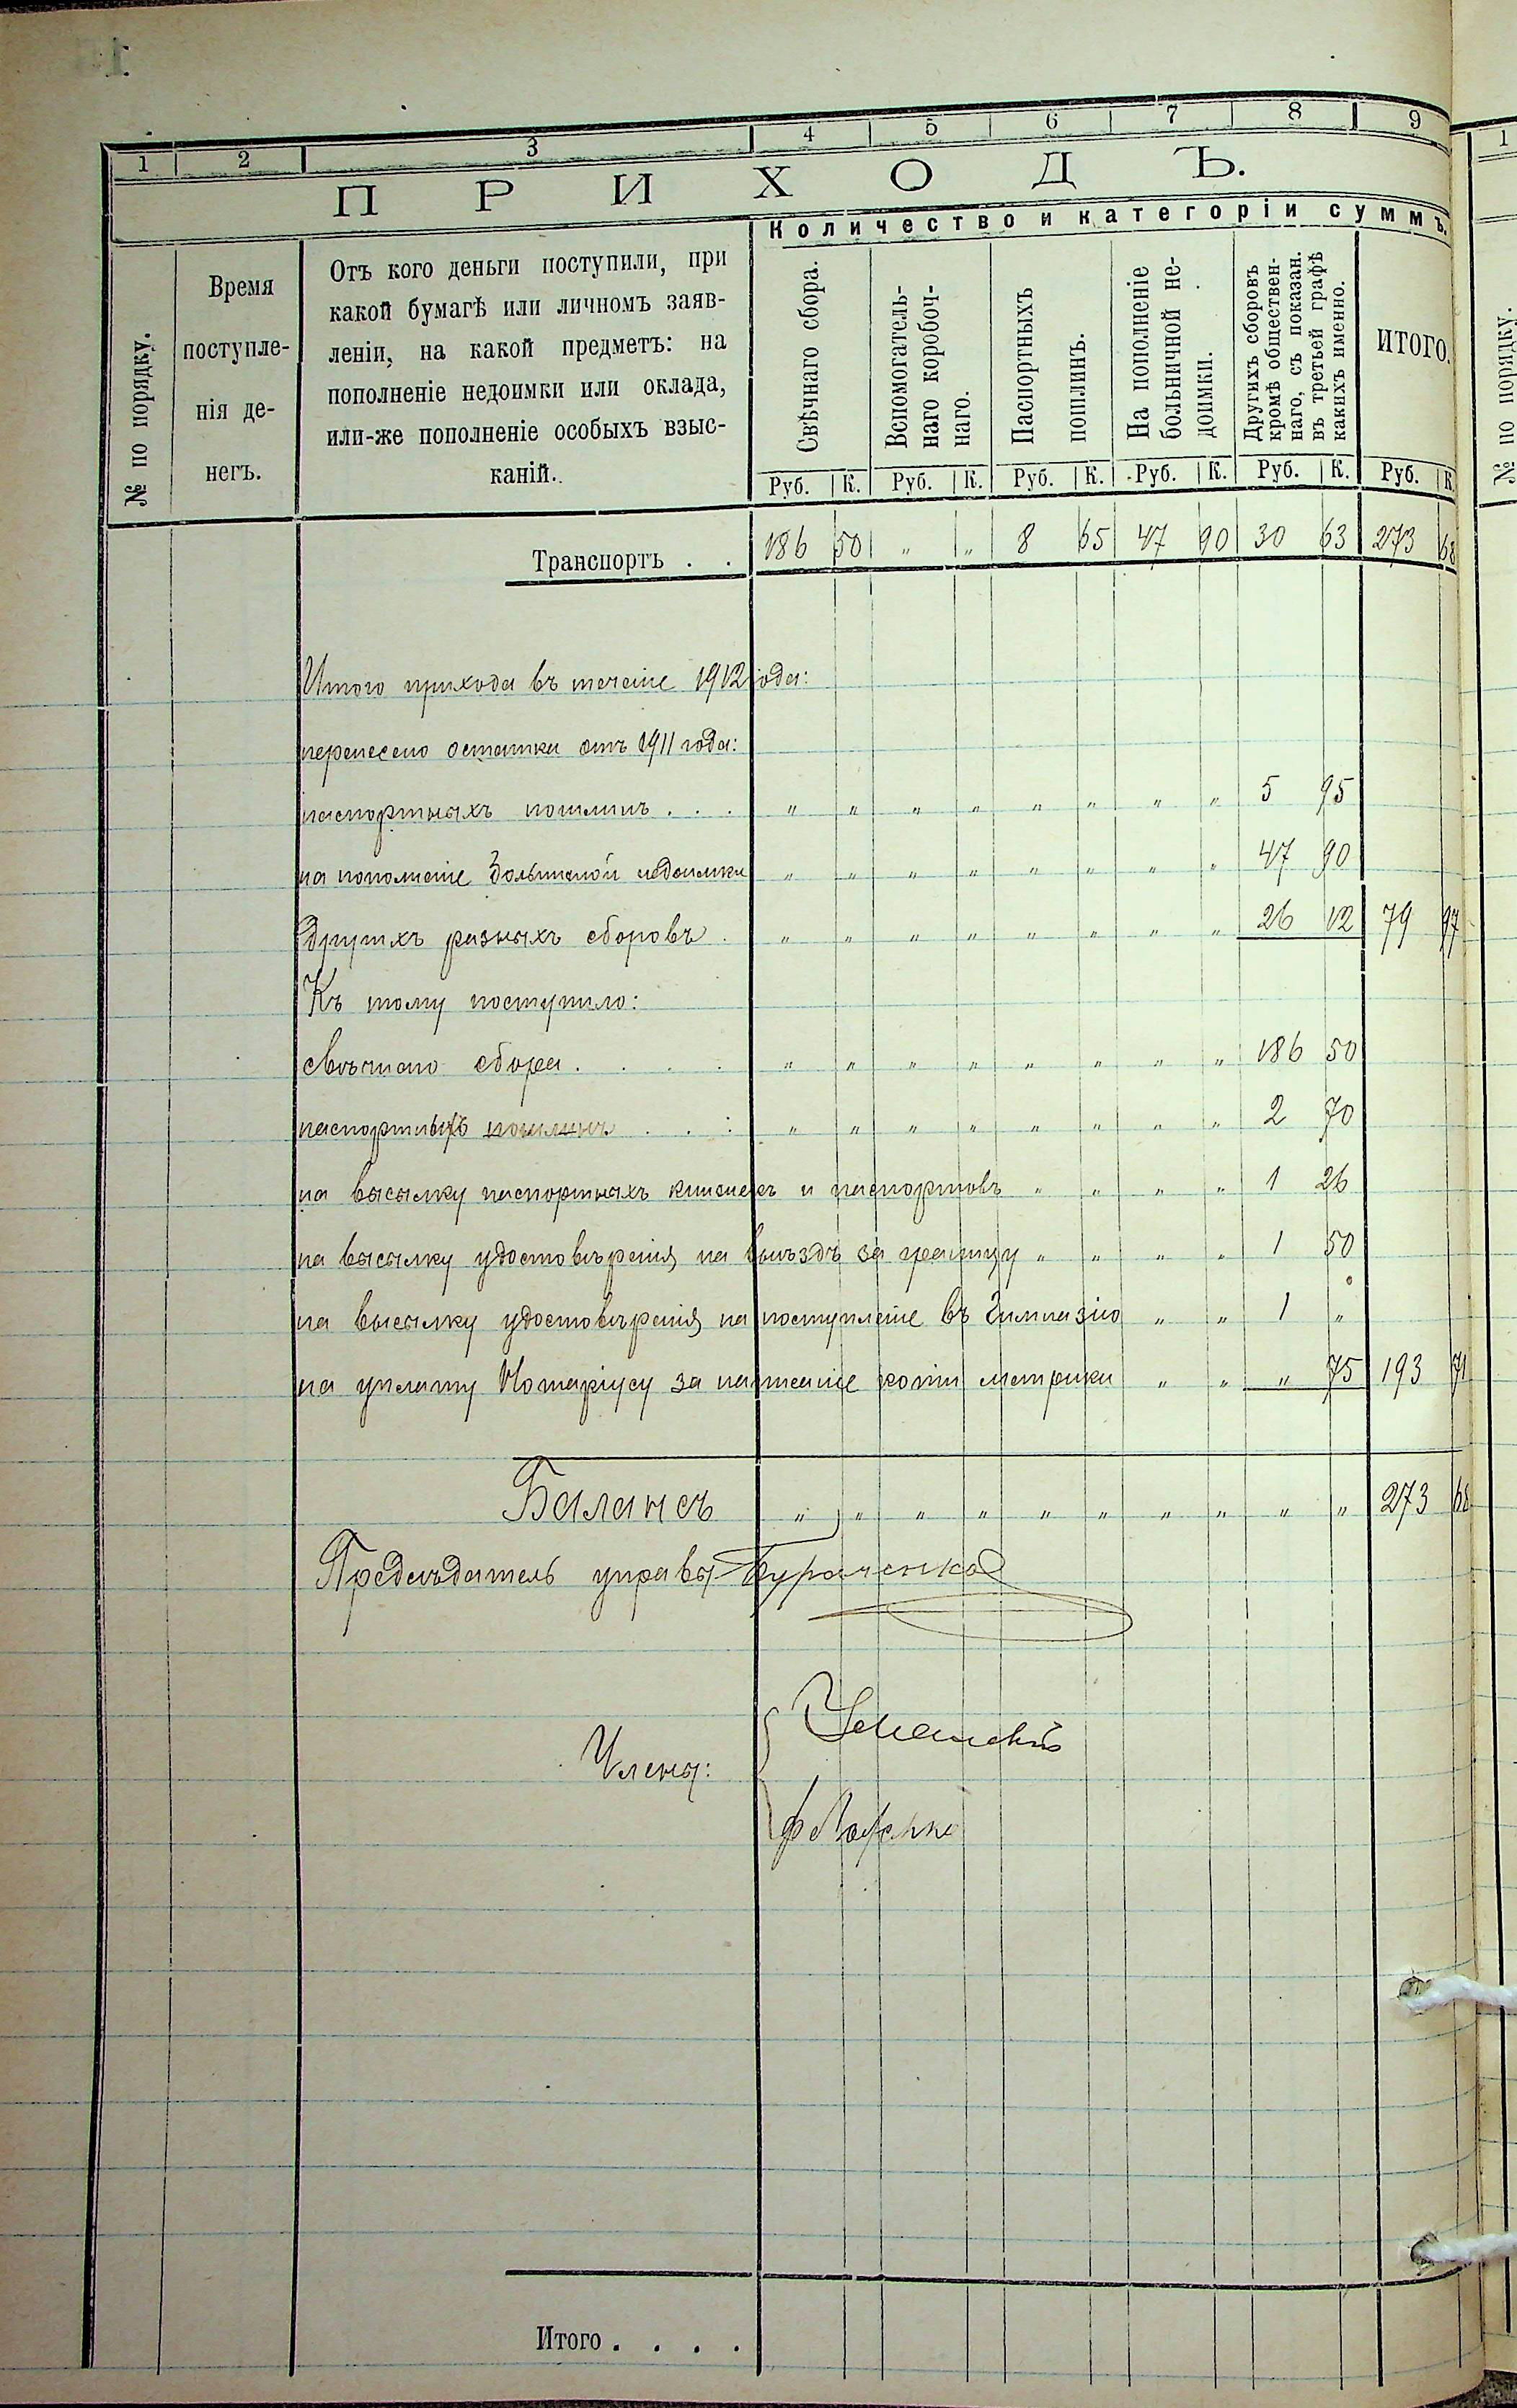 1 2 3 4 5 6 7 8 9
П Р И Х О Д Ъ.
Количество и категоріи суммъ.
№ по порядку.
Время
поступле-
нія де-
негъ.
Отъ кого деньги поступили, при
какой бумагѣ или личномъ заяв-
леніи, на какой предметъ: на
пополненіе недоимки или оклада,
или-же пополненіе особыхъ взыс-
каній.
Свѣчнаго сбора.
Вспомогатель-
наго коробоч-
наго.
Паспортныхъ
пошлинъ.
На пополненіе
больничной не-
доимки.
Другихъ сборовъ
кромѣ обществен-
наго, съ показан.
въ третьей графѣ
какихъ именно.
ИТОГО.
Руб. К. Руб. К. Руб. К. Руб. К. Руб. К. Руб. К.
Транспортъ . . 186 50 " " 8 65 47 90 30 63 273 68
Итого прихода въ теченіе 1912 года:
перенесено остатки отъ 1911 года:
паспортныхъ пошлинъ . . . " " " " " " " " 5 95
на пополненіе Больничной недоимки " " " " " " " " 47 90
Другихъ разныхъ сборовъ . " " " " " " " " 26 12 79 97
Къ тому поступило:
свѣчнаго сбора . . . . " " " " " " " " 186 50
паспортныхъ пошлинъ . . . " " " " " " " " 2 70
на высылку паспортныхъ книжекъ и паспортовъ " " " " 1 26
на высылку удостовѣренія на выѣздъ за границу " " " " 1 50
на высылку удостовѣренія на поступленіе въ Гимназію " " 1 "
на уплату Нотаріусу за написаніе копіи метрики " " " 75 193 71
Балансъ " " " " " " " " " " 273 68
Предсѣдатель управы Бураченко
Члены:
Итого . . . .
1
№ по порядку.